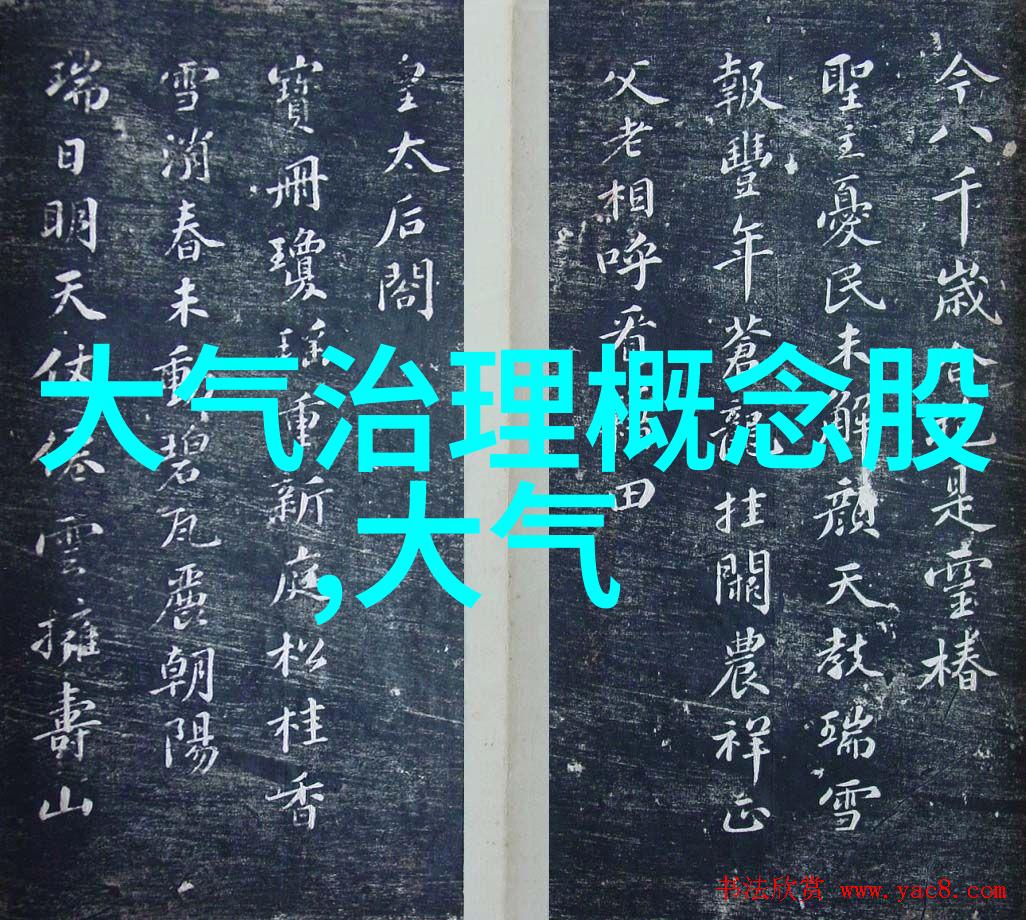 今八千歲
是靈椿
聖主憂民未解顏天教瑞雪
報豐年蒼龍挂闕農祥正
父老相呼看
田
皇太后閣
寶冊瓊
重新庭松桂香
雪消春未動碧瓦麗朝陽
瑞日明天仗
雲擁壽山
大气治理概念股
,大气
书法欣赏 www.yac8.com